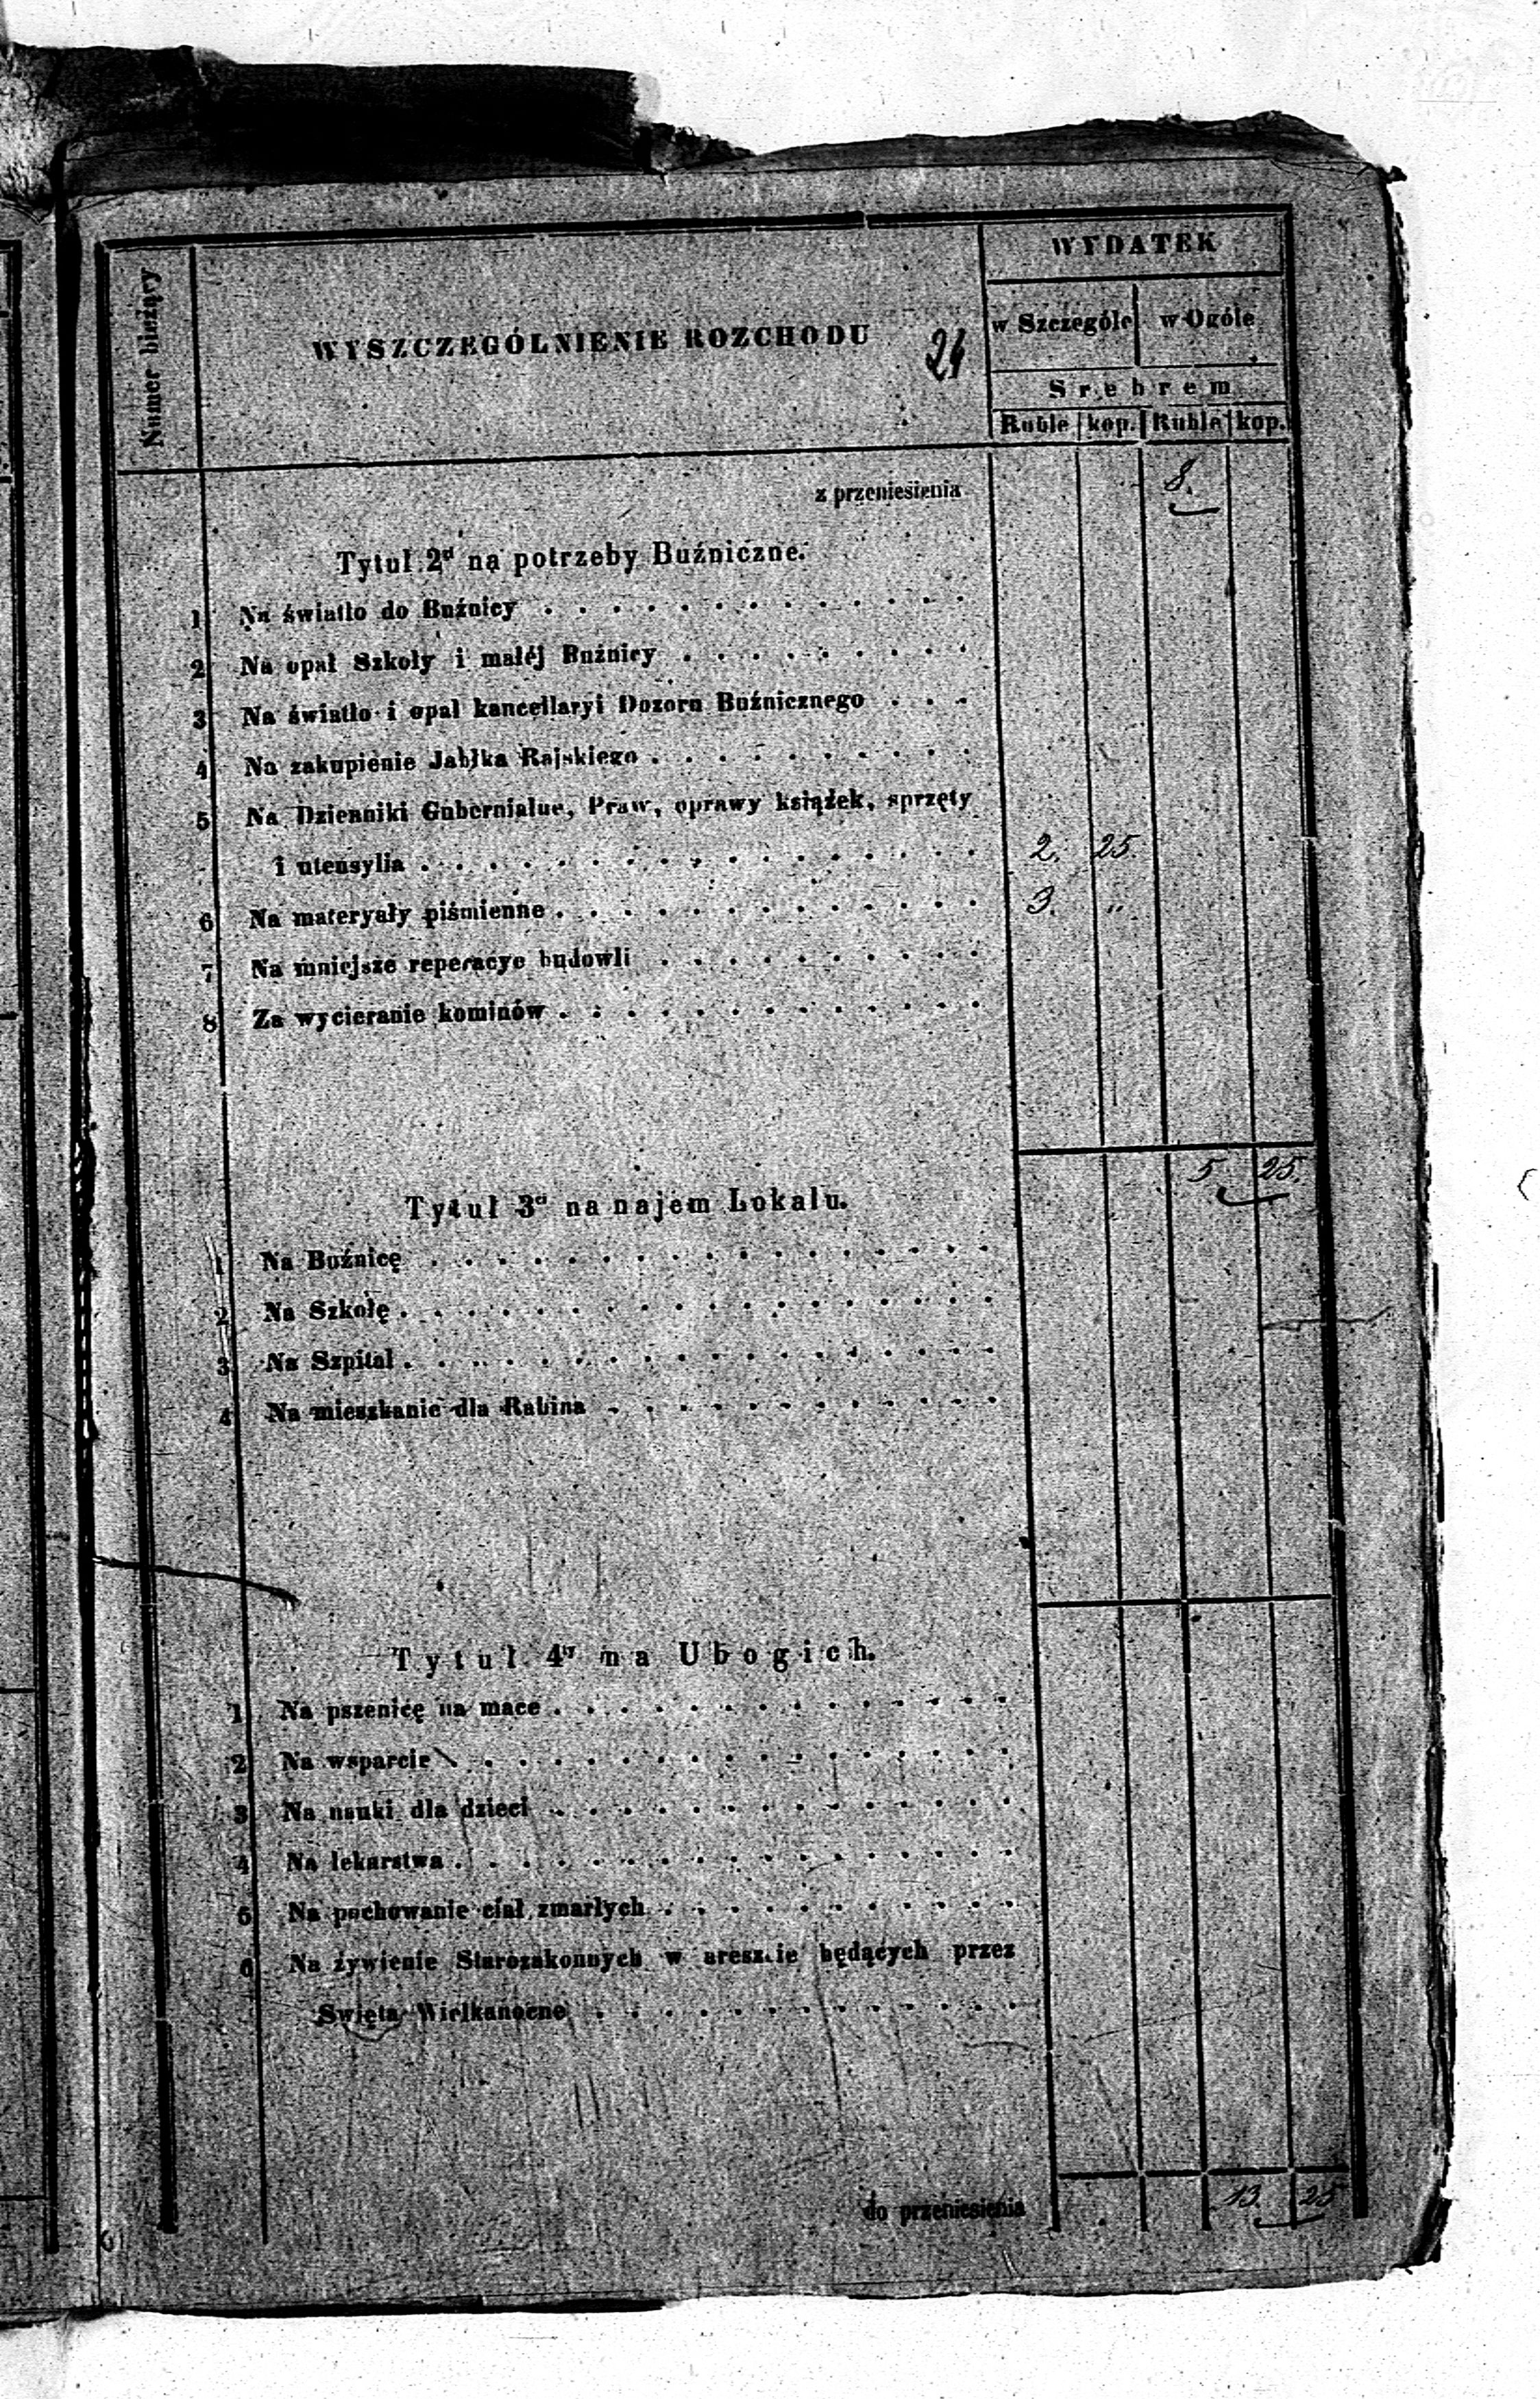 Numer bieżący
WYSZCZEGÓLNIENIE ROZCHODU
24
WYDATEK
w Szczególe w Ogóle
Srebrem
Ruble kop. Ruble kop.
z przeniesienia 8.
Tytuł 2d na potrzeby Buźniczne.
1 Na światło do Buźnicy
2 Na opał Szkoły i małéj Buźnicy
3 Na światło i opał kancellaryi Dozoru Buźnicznego
4 Na zakupienie Jabłka Rajskiego
5 Na Dzienniki Gubernialne, Praw, oprawy książek, sprzęty
i utensylia 2. 25.
6 Na materyały piśmienne 3. "
7 Na mniejsze reperacye budowli
8 Za wycieranie kominów
5 25.
Tytuł 3ci na najem Lokalu.
1 Na Buźnicę
2 Na Szkołę
3 Na Szpital
4 Na mieszkanie dla Rabina
Tytuł 4ty na Ubogich.
1 Na pszenicę na mace
2 Na wsparcie
3 Na nauki dla dzieci
4 Na lekarstwa
5 Na pochowanie ciał zmarłych
6 Na żywienie Starozakonnych w areszcie będących przez
Święta Wielkanocne
do przeniesienia 13. 25